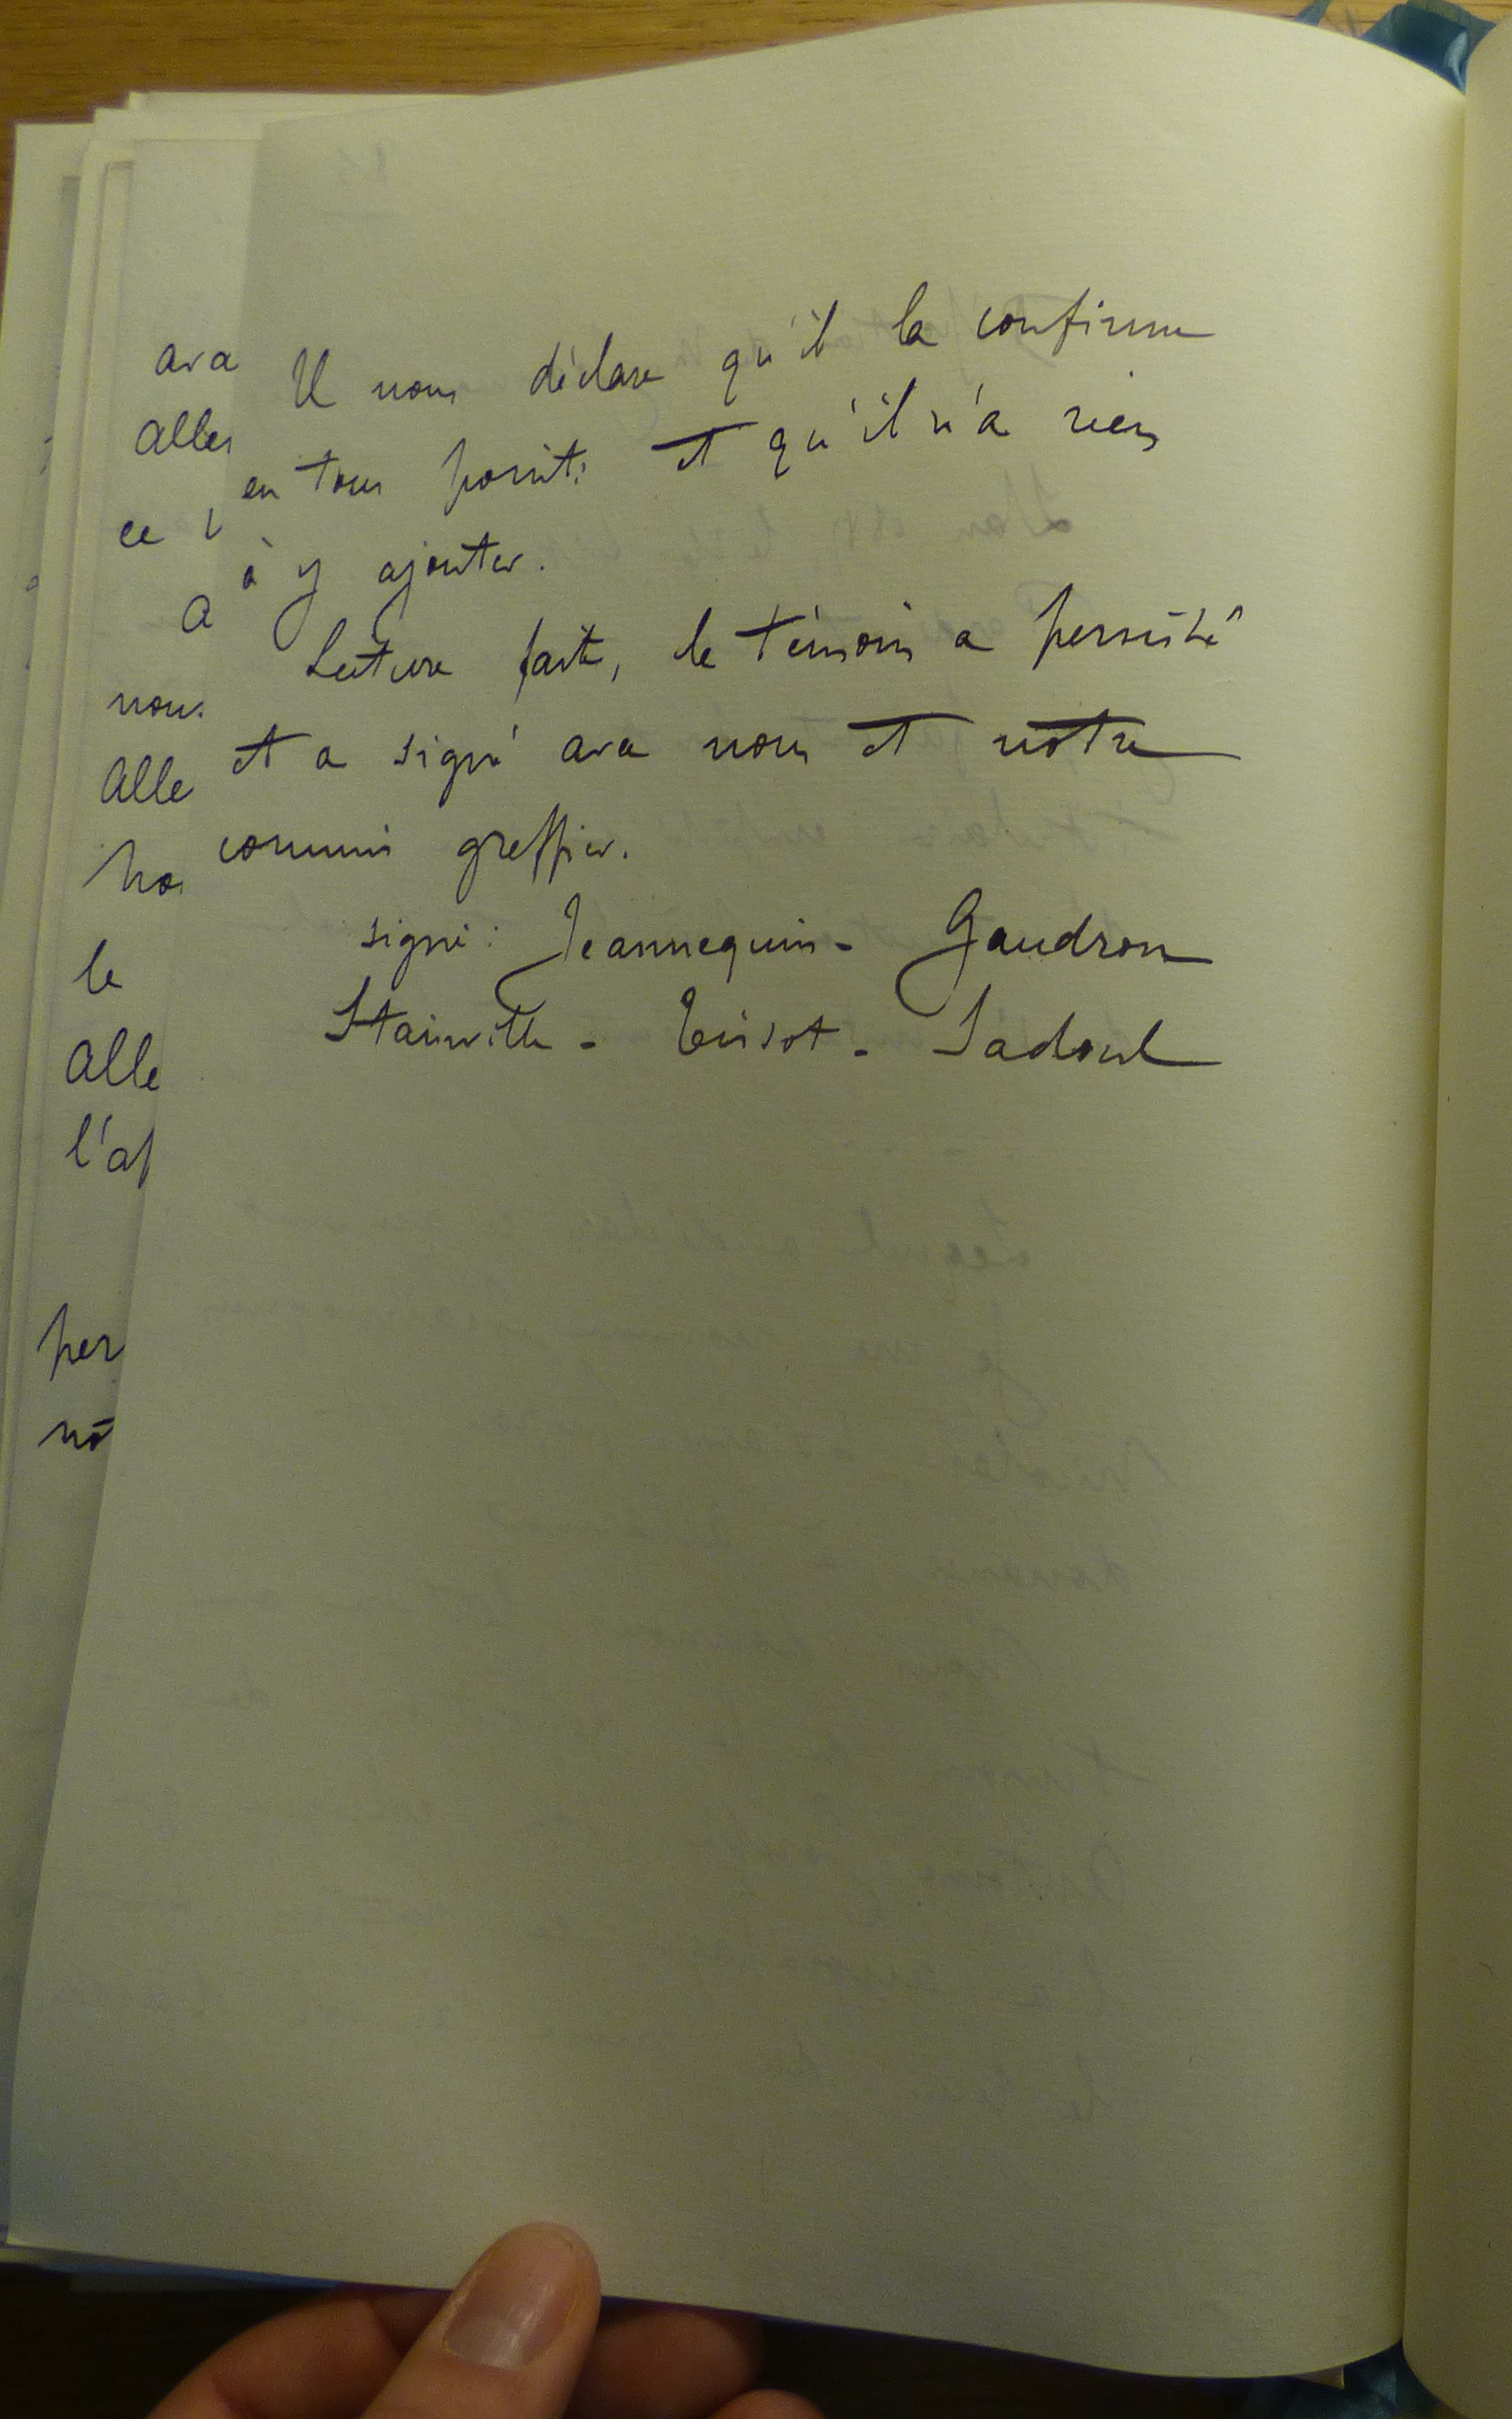 Il nous déclare qu'il la confirme
en tous points et qu'il n'a rien
à y ajouter.
Lecture faite, le témoin a persisté
et a signé avec nous et notre
commis greffier.
signé : Jeannequin - Gaudron
Stainville - Tissot - Sadoul
ave
aller
ce
a
nous
alle
ho
le
alle
l'af
per
no